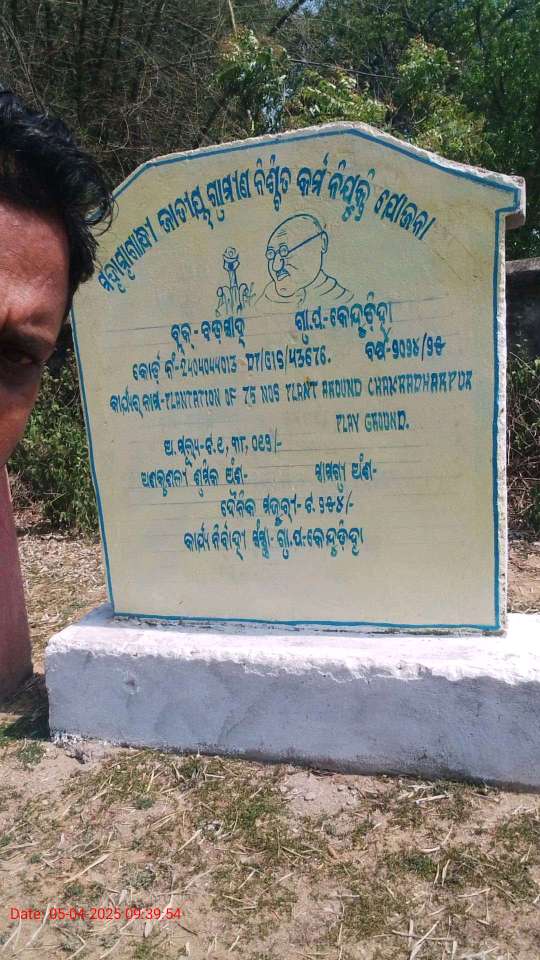 ମହାତ୍ମାଗାନ୍ଧୀ ଜାତୀୟ ଗ୍ରାମୀଣ ନିଶ୍ଚିତ କର୍ମ ନିଯୁକ୍ତି ଯୋଜନା
ବ୍ଲକ- ବଡ଼ସାହି ଗ୍ରା.ପ.-କେନ୍ଦୁଡ଼ିହା
କୋର୍ଡ଼ ନଂ- DP/GIS/ ବର୍ଷ-୨୦୨୪/୨୫
କାର୍ଯ୍ୟର ନାମ-PLANTATION OF 75 NOS PLANT AROUND CHAKRADHARPUR
PLAY GROUND.
ଅ.ମୂଲ୍ୟ-ଟ.
ଅଣକୁଶଳୀ ଶ୍ରମିକ ଅଂଶ- ସାମଗ୍ରୀ ଅଂଶ-
ଦୈନିକ ମଜୁରୀ-ଟ.୨୫୪/-
କାର୍ଯ୍ୟ ନିର୍ବାହୀ ସଂସ୍ଥା-ଗ୍ରା.ପ.-କେନ୍ଦୁଡ଼ିହା
Date: 05-04-2025 09:39:54